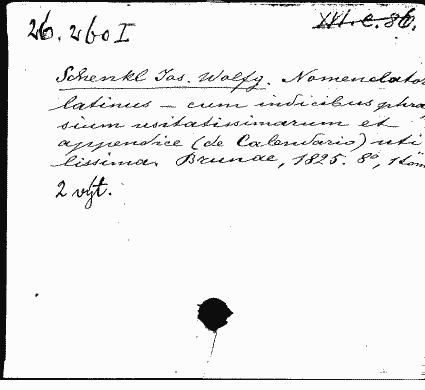 26.260 I
XVI. e. 86.
Schenkl Jas. Wolfg. Nomenclator
latinus – cum indicibus phra
sium usitatissimarum et
appendice (de Calendario) uti
lissima. Brunae, 1825. 8°, 1 tom
2 výt.